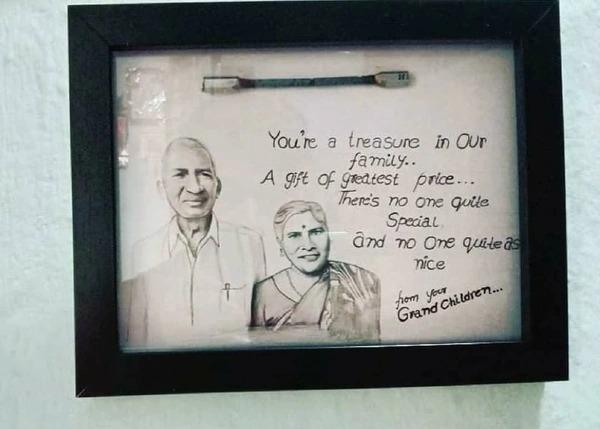 You're a treasure in Our
family..
A gift of greatest price...
There's no one quite
Special
and no One quite as
nice
from your
Grand Children...